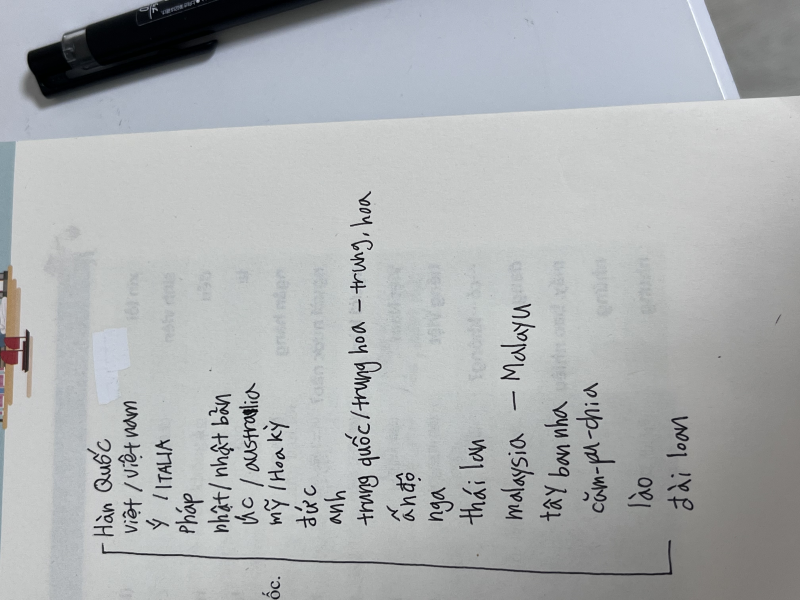 Hàn Quốc
việt / việt nam
Ý / ITALIA
Pháp
nhật / nhật bản
Úc / australia
mỹ / Hoa kỳ
đức
anh
trung quốc / trung hoa – trung, hoa
ấn độ
nga
thái lan
malaysia — Malayu
tây ban nha
căm-pu-chia
lào
đài loan
ốc.